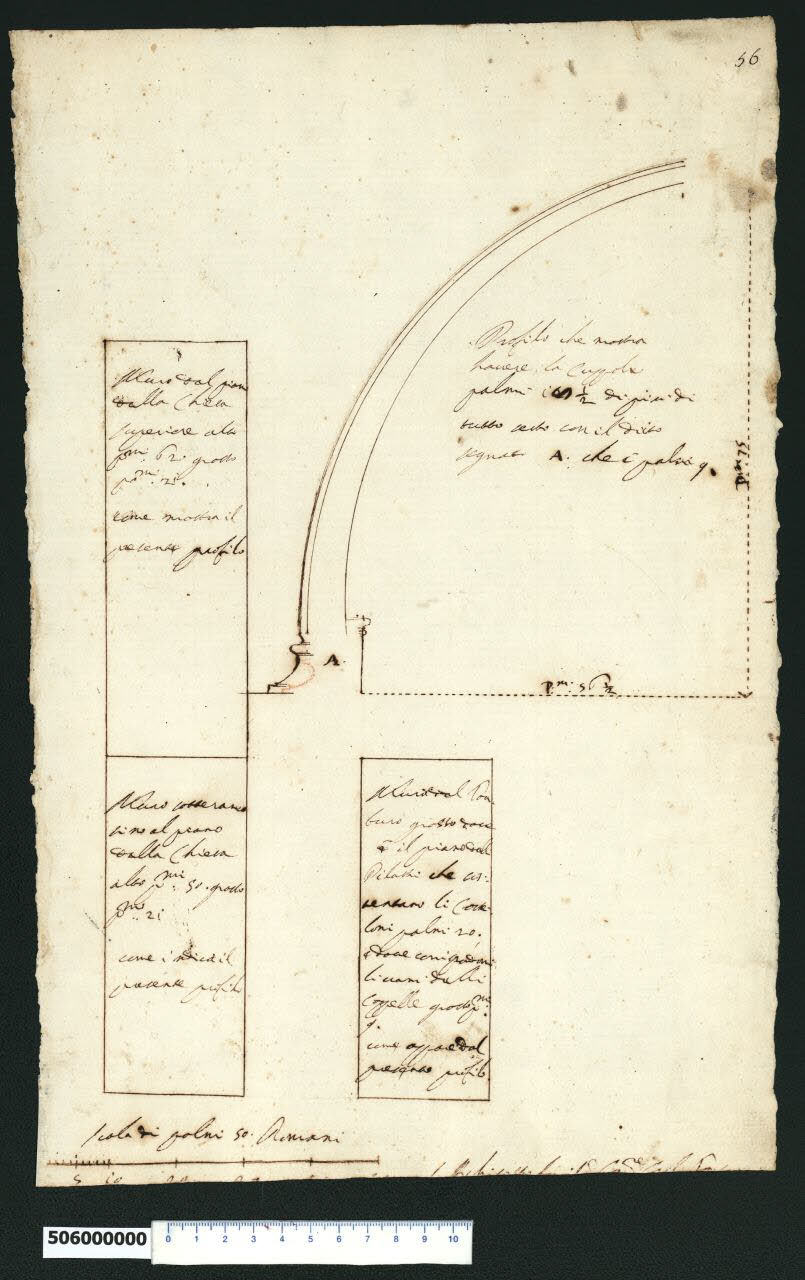 56
Profilo che mostra
havere la Cuppola
palmi 1/2 di piu di
tutto sesto con il ditto
segnato A. che è palmi 9.
pmi 75
A.
pmi 56 1/2
Muro dal piano
della Chiesa
superiore alto
pmi 62. grosso
pmi 21.
come mostra il
presente profilo
Muro sotteraneo
sino al piano
della Chiesa
alto pmi 50. grosso
pmi 21
come indica il
presente profilo
Muro del Tam
buro grosso dove
è il piano del
Pilastri che
li Coste
loni palmi 20.
e dove
li vani delli
Coppelle grosso pmi
9.
come appare dal
presente profilo
Scala di palmi 50. Romani
5 10 20
506000000
0 1 2 3 4 5 6 7 8 9 10